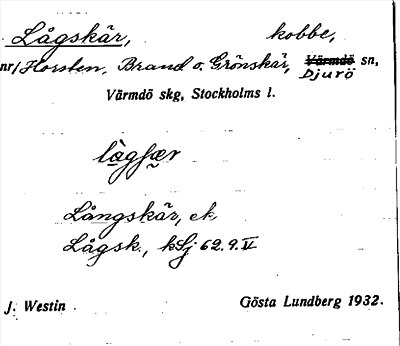 Lågskär, kobbe,
nr/Horsten, Brand o. Grönskär, Värmdö sn,
Djurö
Värmdö skg, Stockholms l.
lågʃær
Långskär, ek
Lågsk., kSj 62.9.IV
J. Westin Gösta Lundberg 1932.